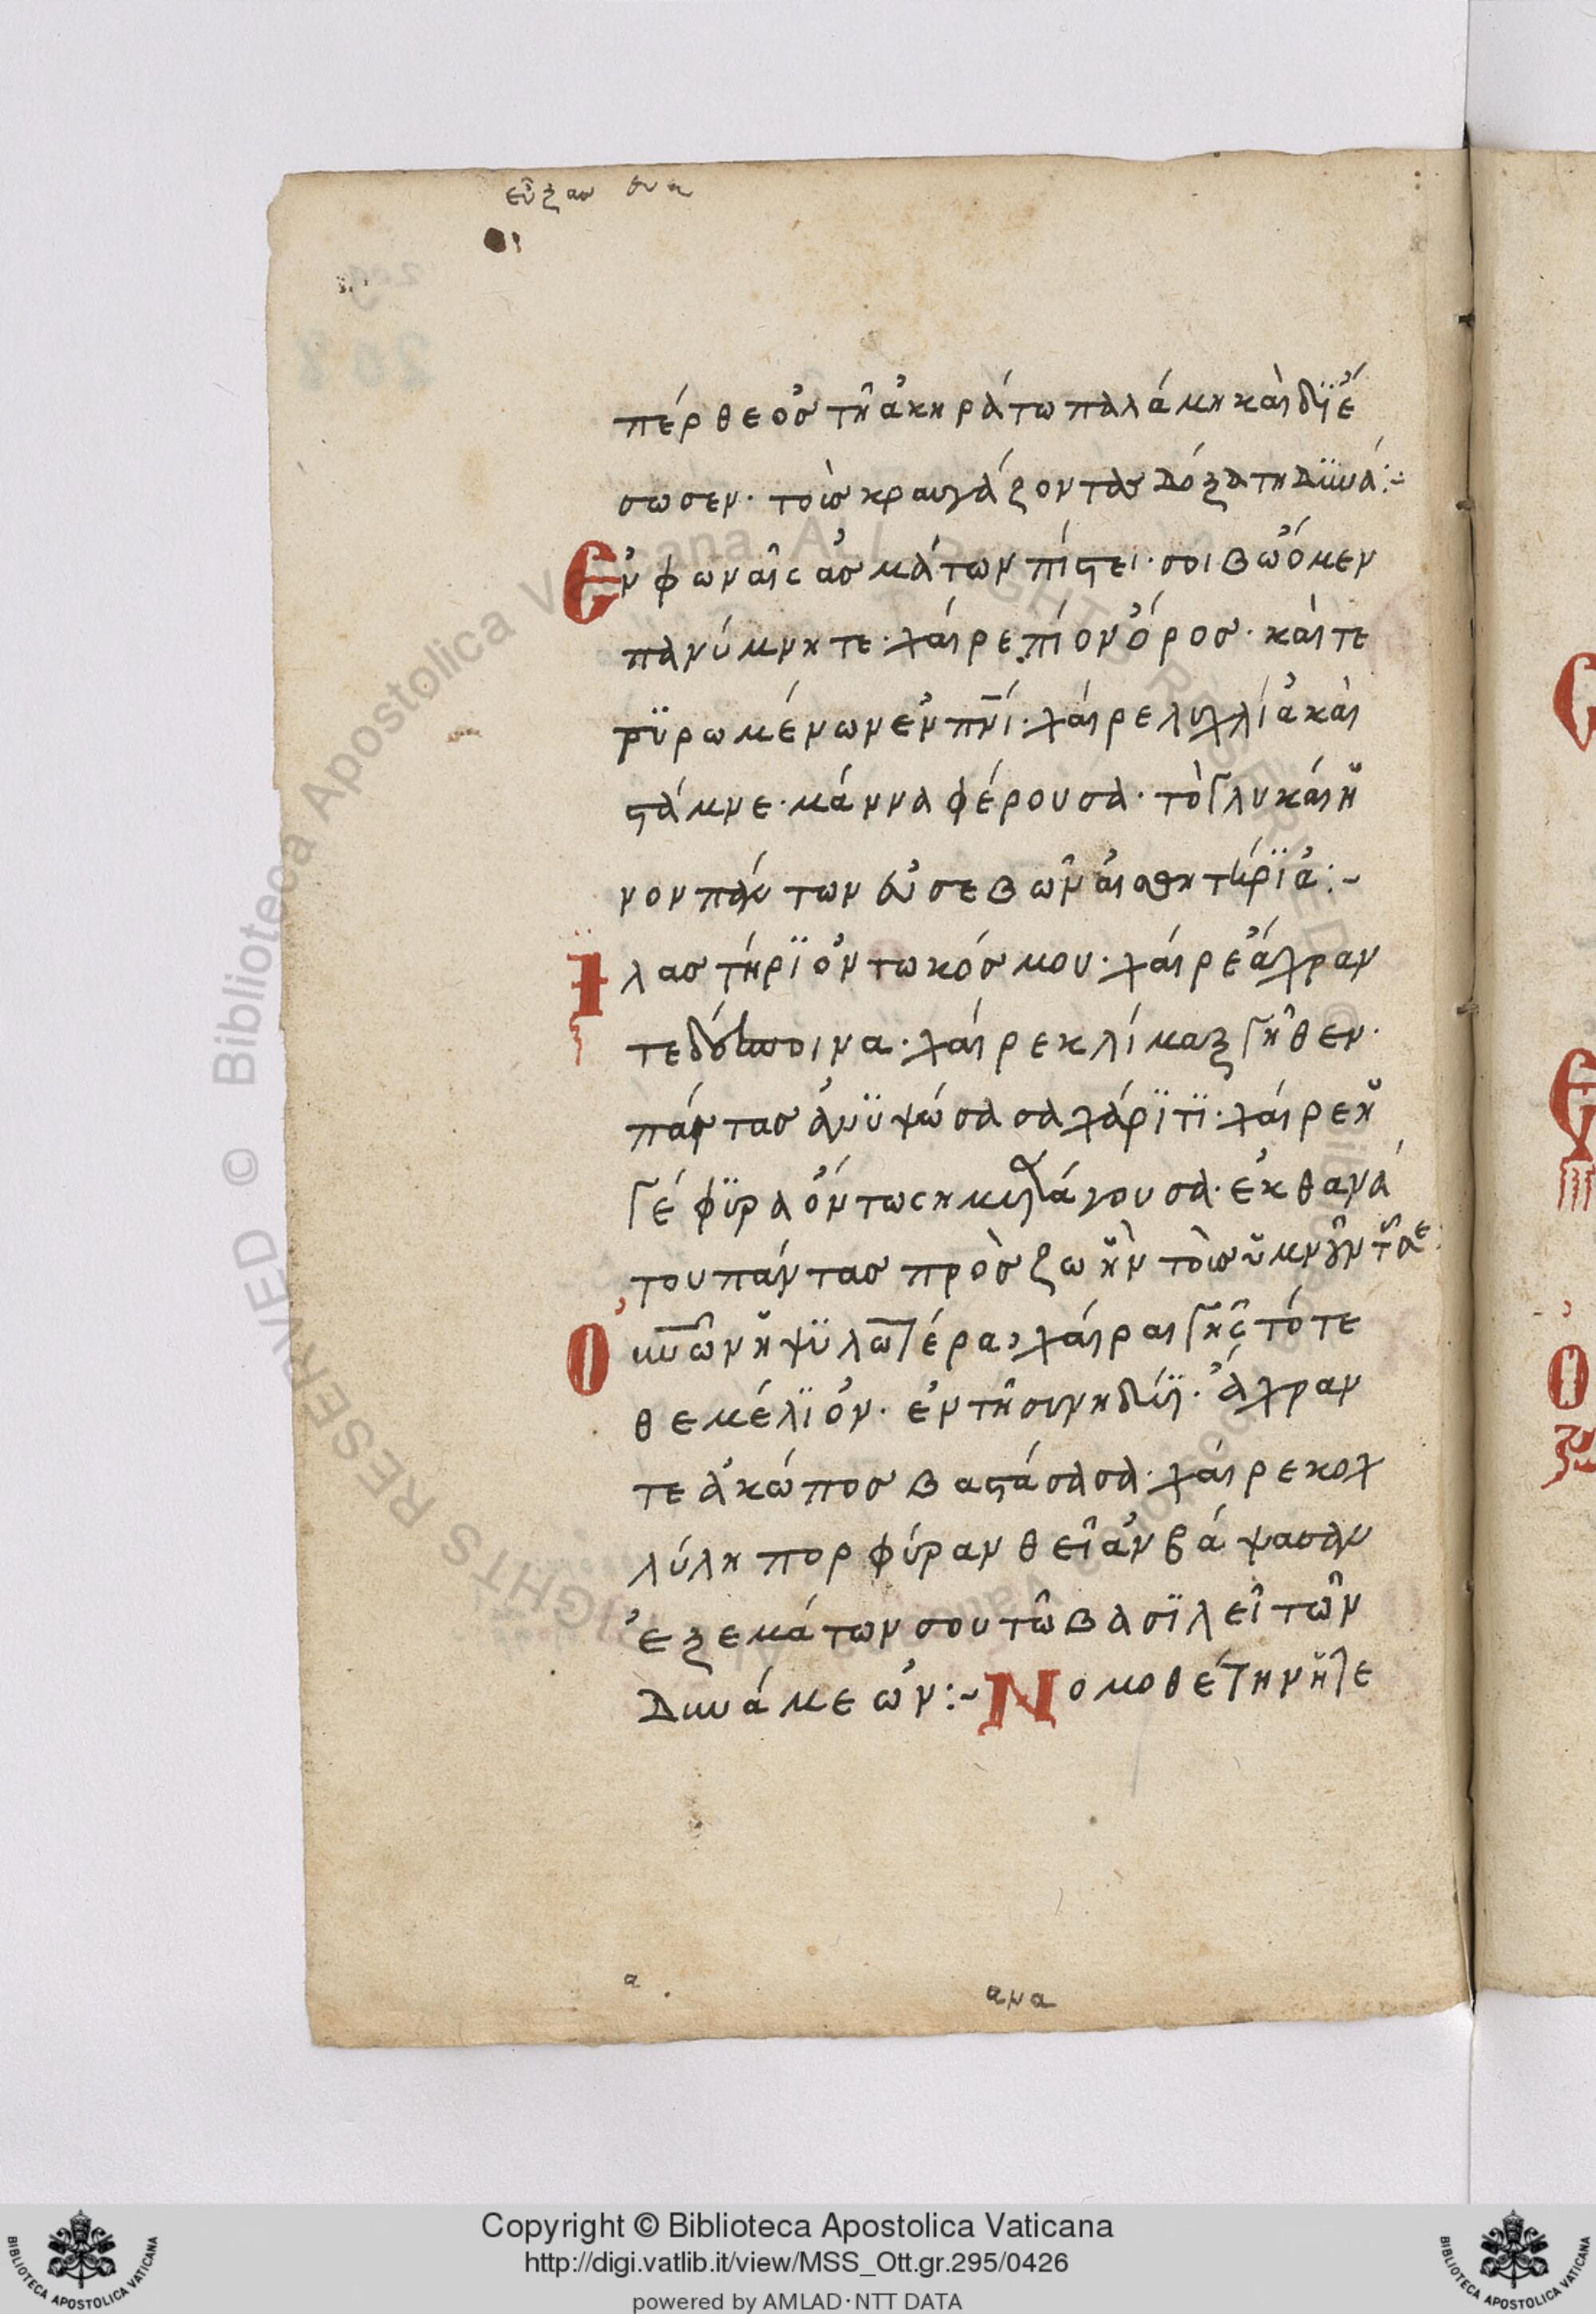 πέρ θεὸσ τῆ ἀκηράτω παλάμη καὶ δϊέ
σωσεν· τοὺσ κραυγάζοντασ δόξα τη δϋνά:~
Ἐν φωναῖς ἀσμάτων πίστει· σοι βωὅμεν
πανύμνητε· χαίρε πίον ὄροσ· καὶ τε
τϋρωμένων ἐν πνί· χαίρε λυχλίἀ καὶ
στάμνε· μάννα φέρουσα· τὸ γλυκάιη
νον πάντων εὐσεβῶν ἀισθητήρϊἀ:~
Ιλαστήρϊὀν τω κόσμου· χαίρε ἄχραν
τε δέσποινα· χαίρε κλίμαξ γῆθεν·
πάντασ ἀνϋψώσασα χάρϊτϊ· χαίρε ἡ
γέφϋρα ὄντως η μετάγουσα· ἐκ θανά
του πάντασ πρὸσ ζωὴν τοὺσ ὑμνοῦντασε:
Ουνῶν ἡψϋλωτέρα, χαίραι γῆς τότε
θεμέλϊὀν· ἐν τῆ συνηδίϊ· ἄχραν
τε ἀκώποσ βαστάσασα· χαίρε κοχ
λύλη πορφύραν θεῖἀν βάψασαν
ἐξ εμάτων σου τῶ βασϊλεῖ τῶν
Δυνάμεὠν:~ Νομοθέτην ἡ τε
α
αμα
Copyright © Biblioteca Apostolica Vaticana
http://digi.vatlib.it/view/MSS_Ott.gr.295/0426
powered by AMLAD·NTT DATA
BIBLIOTECA APOSTOLICA VATICANA
BIBLIOTECA APOSTOLICA VATICANA